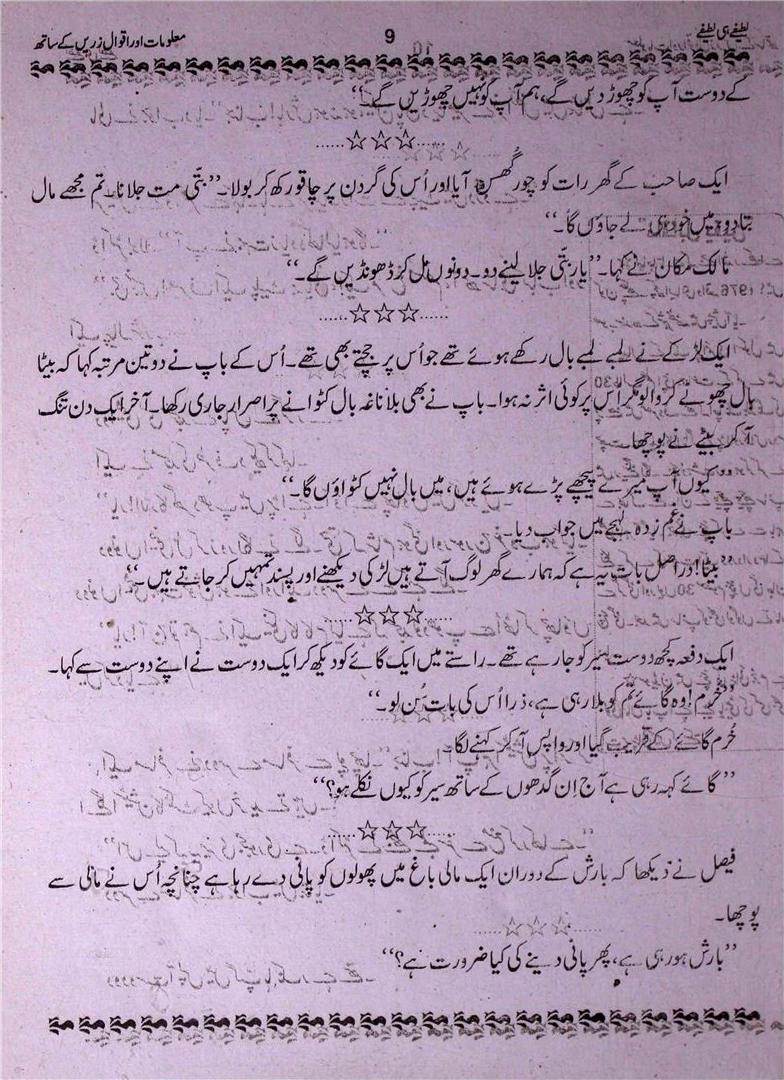 لطیفے ہی لطیفے
9
معلومات اور اقوال زریں کے ساتھ
کے دوست آپ کو چھوڑ دیں گے، ہم آپ کو نہیں چھوڑیں گے۔‘‘
......☆☆☆......
ایک صاحب کے گھر رات کو چور گھس آیا اور اُس کی گردن پر چاقو رکھ کر بولا۔’’بتّی مت جلانا، تم مجھے مال
بتا دو، میں خود ہی لے جاؤں گا۔‘‘
مالک مکان نے کہا۔’’یار بتّی جلا لینے دو۔ دونوں مل کر ڈھونڈیں گے۔‘‘
......☆☆☆......
ایک لڑکے نے لمبے لمبے بال رکھے ہوئے تھے جو اُس پر جچتے بھی تھے۔ اُس کے باپ نے دو تین مرتبہ کہا کہ بیٹا
بال چھوٹے کروا لو مگر اُس پر کوئی اثر نہ ہوا۔ باپ نے بھی بلا ناغہ بال کٹوانے پر اصرار جاری رکھا۔ آخر ایک دن تنگ
آ کر بیٹے نے پوچھا۔
’’کیوں آپ میرے پیچھے پڑے ہوئے ہیں، میں بال نہیں کٹواؤں گا۔‘‘
باپ نے غم زدہ لہجے میں جواب دیا۔
’’بیٹا! دراصل بات یہ ہے کہ ہمارے گھر لوگ آتے ہیں لڑکی دیکھنے اور پسند تمہیں کر جاتے ہیں۔‘‘
......☆☆☆......
ایک دفعہ کچھ دوست سیر کو جا رہے تھے۔ راستے میں ایک گائے کو دیکھ کر ایک دوست نے اپنے دوست سے کہا۔
’’خرم! وہ گائے تم کو بلا رہی ہے، ذرا اُس کی بات سُن لو۔‘‘
خُرم گائے کے قریب گیا اور واپس آ کر کہنے لگا۔
’’گائے کہہ رہی ہے آج اِن گدھوں کے ساتھ سیر کو کیوں نکلے ہو؟‘‘
......☆☆☆......
فیصل نے دیکھا کہ بارش کے دوران ایک مالی باغ میں پھولوں کو پانی دے رہا ہے چنانچہ اُس نے مالی سے
پوچھا۔
’’بارش ہو رہی ہے، پھر پانی دینے کی کیا ضرورت ہے؟‘‘